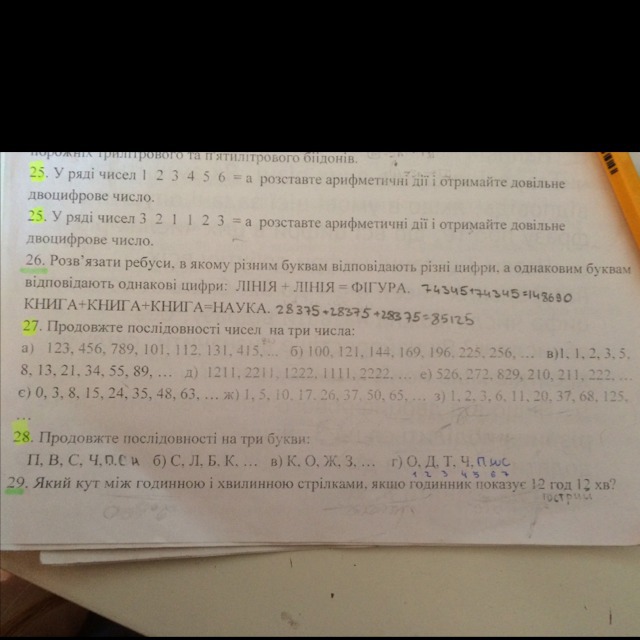 порожніх трилітрового та п'ятилітрового бідонів.
25. У ряді чисел 1 2 3 4 5 6 = а розставте арифметичні дії і отримайте довільне
двоцифрове число.
25. У ряді чисел 3 2 1 1 2 3 = а розставте арифметичні дії і отримайте довільне
двоцифрове число.
26. Розв'язати ребуси, в якому різним буквам відповідають різні цифри, а однаковим буквам
відповідають однакові цифри: ЛІНІЯ + ЛІНІЯ = ФІГУРА. 74345+74345=148690
КНИГА+КНИГА+КНИГА=НАУКА. 28375+28375+28375=85125
27. Продовжте послідовності чисел на три числа:
а) 123, 456, 789, 101, 112, 131, 415,... б) 100, 121, 144, 169, 196, 225, 256, ... в)1, 1, 2, 3, 5,
8, 13, 21, 34, 55, 89, ... д) 1211, 2211, 1222, 1111, 2222, ... е) 526, 272, 829, 210, 211, 222, ...
є) 0, 3, 8, 15, 24, 35, 48, 63, ... ж) 1, 5, 10, 17, 26, 37, 50, 65, ... з) 1, 2, 3, 6, 11, 20, 37, 68, 125,
...
28. Продовжте послідовності на три букви:
П, В, С, Ч, П. С Н б) С, Л, Б, К, ... в) К, О, Ж, З, ... г) О, Д, Т, Ч, П Ш С
1 2 3 4 5 6 7
29. Який кут між годинною і хвилинною стрілками, якщо годинник показує 12 год 12 хв?
гострий